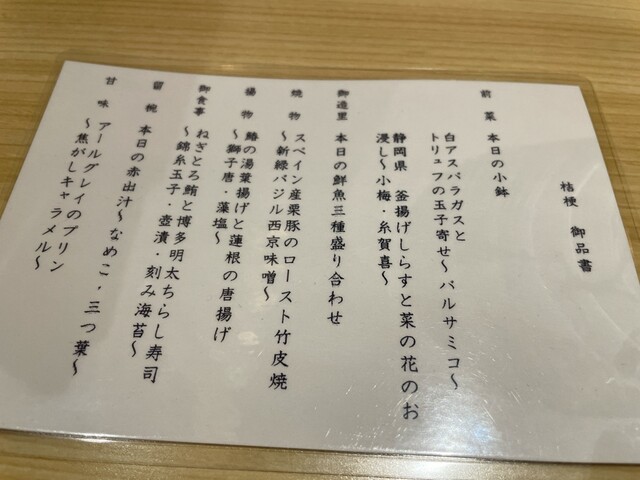 桔梗　御品書
前菜　本日の小鉢
白アスパラガスと
トリュフの玉子寄せ〜バルサミコ〜
静岡県　釜揚げしらすと菜の花のお
浸し〜小梅・糸賀喜〜
御造里　本日の鮮魚三種盛り合わせ
焼物　スペイン産栗豚のロースト竹皮焼
〜新緑バジル西京味噌〜
揚物　鰆の湯葉揚げと蓮根の唐揚げ
〜獅子唐・藻塩〜
御食事　ねぎとろ鮪と博多明太ちらし寿司
〜錦糸玉子・壺漬・刻み海苔〜
留椀　本日の赤出汁〜なめこ・三つ葉〜
甘味　アールグレイのプリン
〜焦がしキャラメル〜